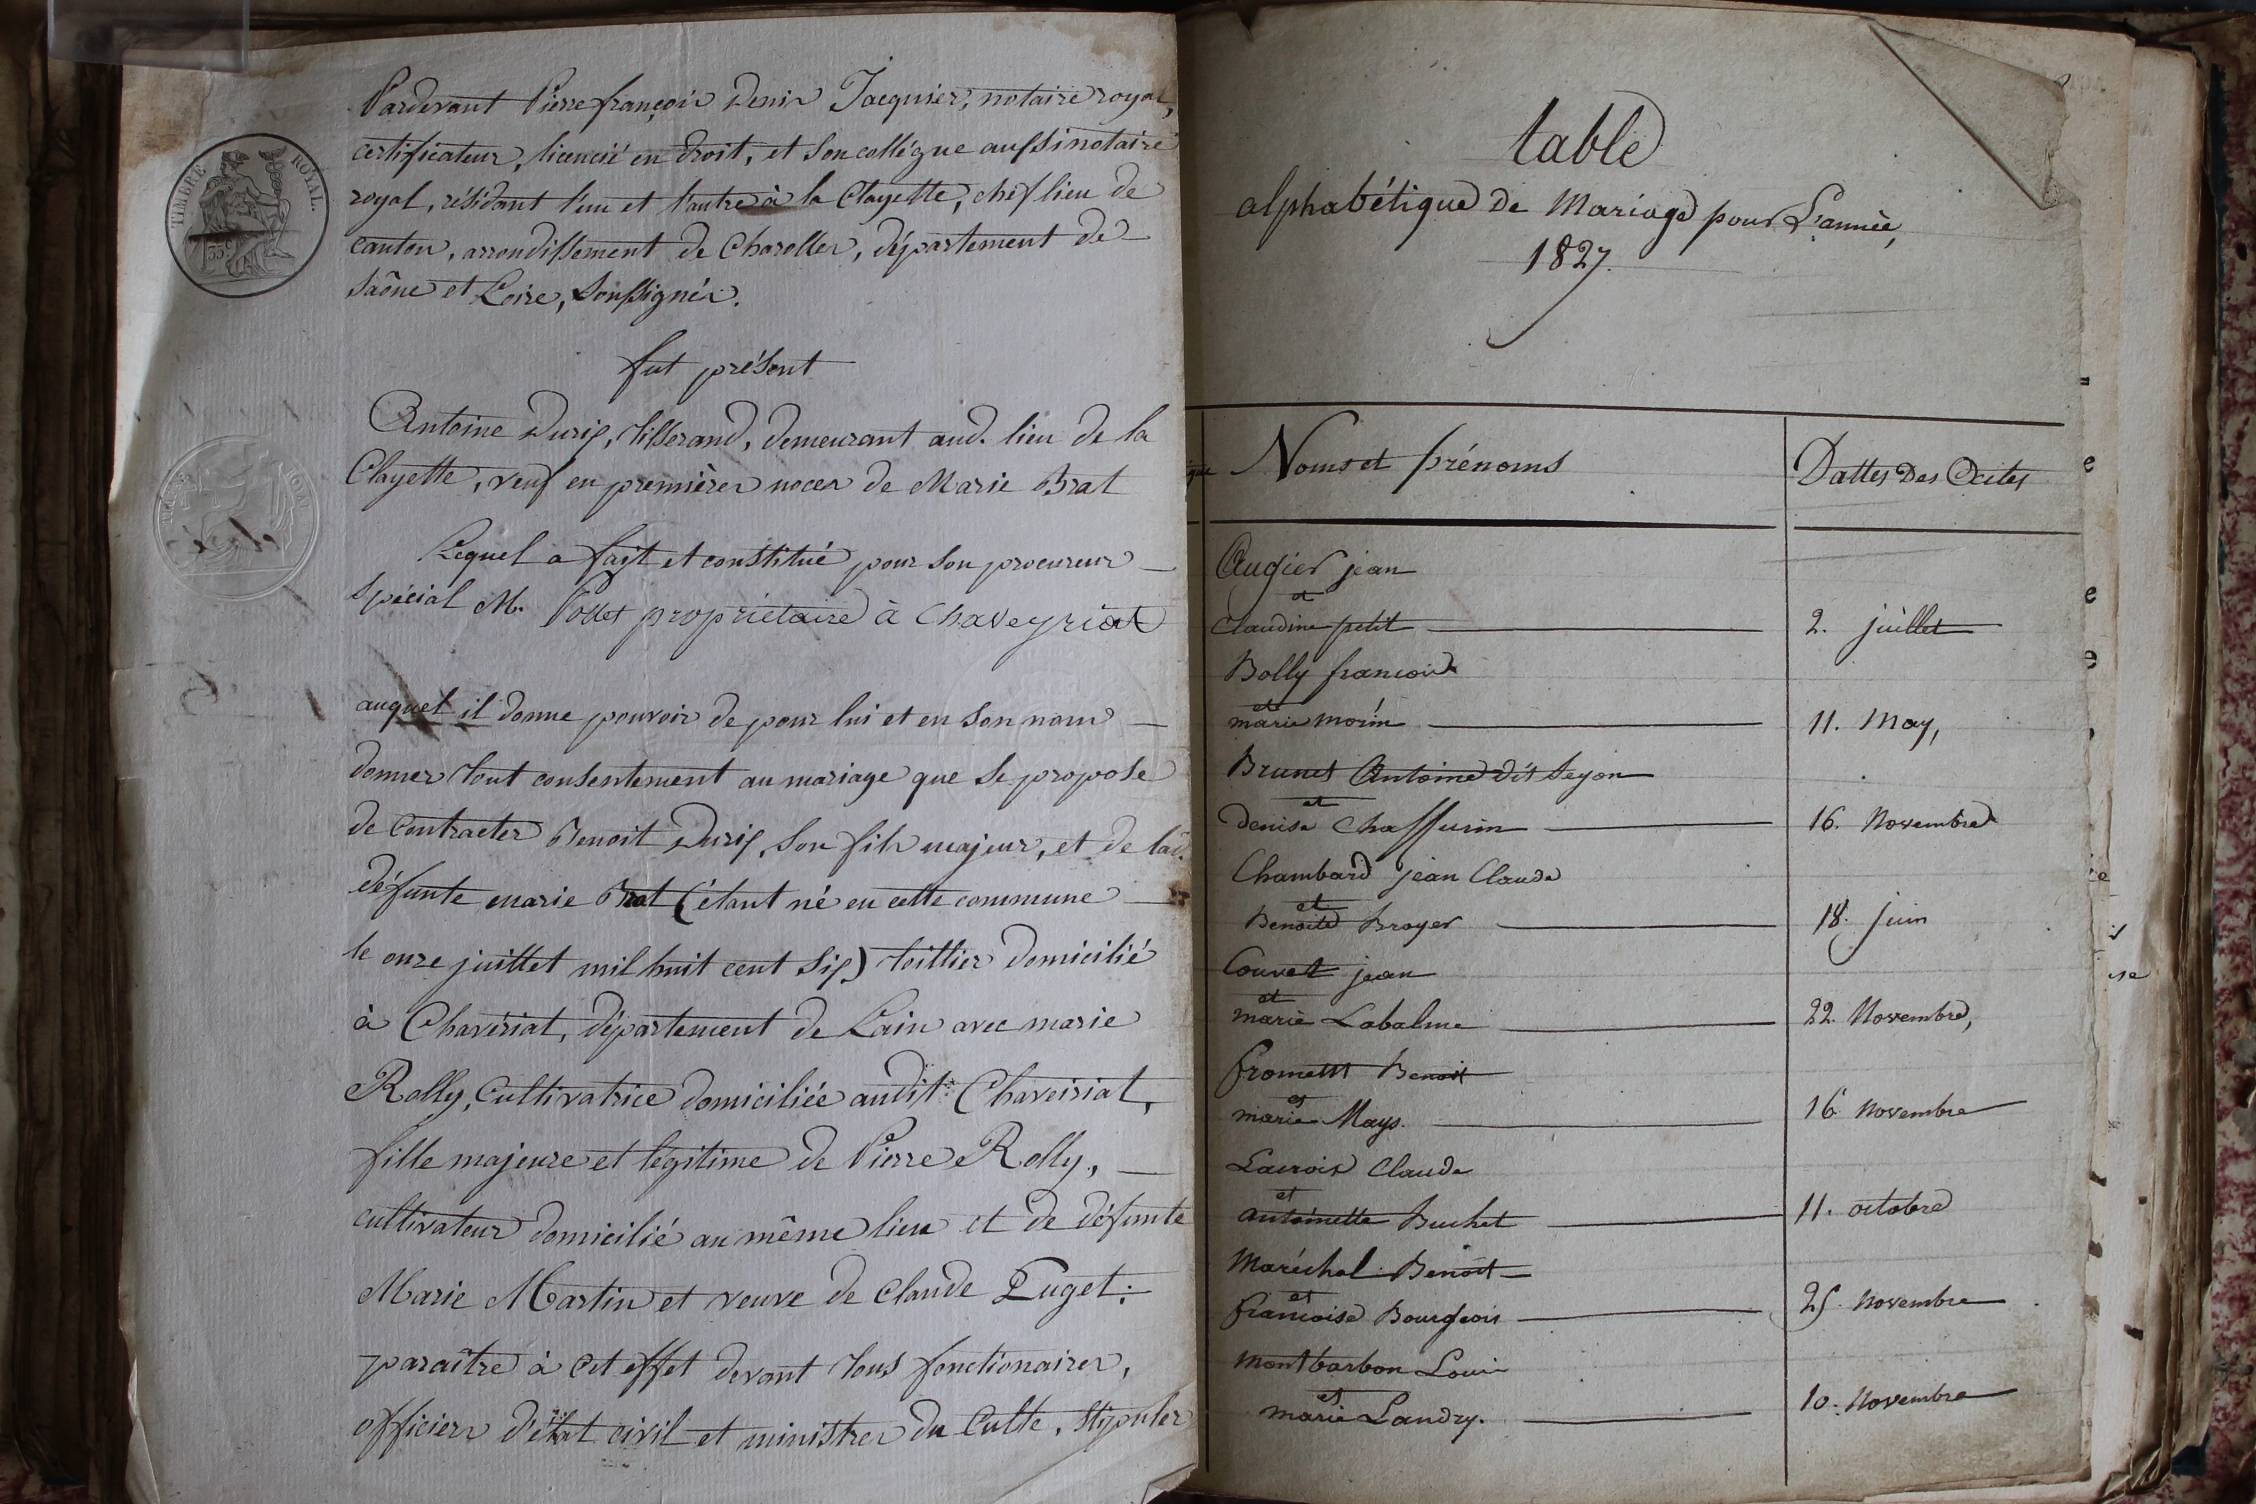 Pardevant Pierre françois Denis Jacquier, notaire royal,
certificateur, licencié en droit, et son collégue aussi notaire
royal, résidant l'un et l'autre à la Clayette, chef lieu de
canton, arrondissement de Charolles, département de
Saône et Loire, soussignés.
TIMBRE ROYAL.
35
fut présent
Antoine Durix, tisserand, demeurant aud. lieu de la
Clayette, veuf en premières noces de Marie Brat
Lequel a fait et constitué pour son procureur
spécial M. Pollet propriétaire à Chaveyriat
auquel il donne pouvoir de pour lui et en son nom
donner tout consentement au mariage que se propose
de contracter Benoit Durix, son fils majeur, et de lad.
défunte marie Brat (étant né en cette commune
le onze juillet mil huit cent six) toillier domicilié
à Chavériat, département de Lain avec marie
Rolly, Cultivatrice domiciliée audit Chaveiriat,
fille majeure et légitime de Pierre Rolly,
cultivateur domicilié au même lieu et de défunte
Marie Martin et veuve de Claude Puget:
paraître à cet effet devant tous fonctionaires,
officiers d'état civil et ministres du Culte, stipuler
table
alphabétique de Mariage pour L'année,
1827.
Noms et prénoms
Dattes Des Actes
Augier jean
et
Claudine petit 2. juillet
Bolly francois
et
marie morin 11. May,
Brunet Antoine dit Seyon
et
denise Chaffurin 16. Novembre
Chambard jean Claude
et
Benoite Broyer 18. juin
Couvet jean
et
marie Labalme 22. Novembre,
fromett Benoit
et
marie Mays. 16 novembre
Lacroix Claude
et
antoinette Buchet 11. octobre
Maréchal Benoit
et
francoise Bourgeois 25. novembre
Montbarbon Louis
et
marie Landry. 10. Novembre